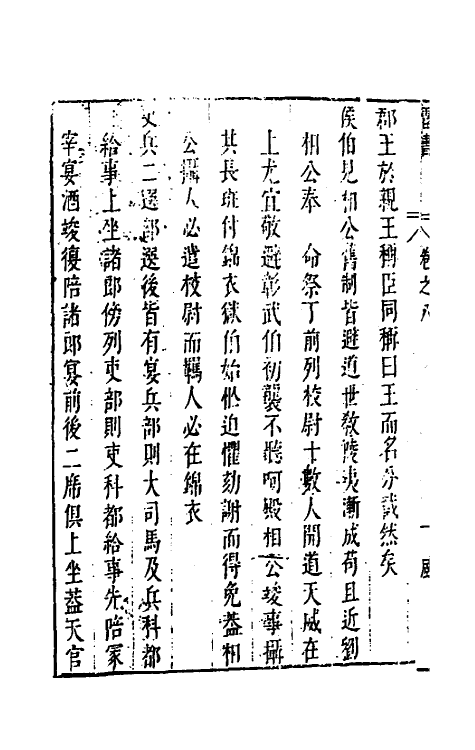 卷之八
郡王於親王稱臣同稱曰王而名分截然矣
侯伯見相公舊制皆避道世敎陵夷漸成苟且近劉
相公奉　命祭丁前列校尉十數人開道天威在
上尤宜敬避彰武伯初襲不聽呵殿相公竣事攝
其長班付錦衣獄伯始惶迫懼劾謝而得免葢相
公攝人必遣校尉而羈人必在錦衣
吏兵二選部選後皆有宴兵部則大司馬及兵科都
給事上坐諸郎傍列吏部則吏科都給事先陪冢
宰宴酒竣復陪諸郎宴前後二席俱上坐葢天官